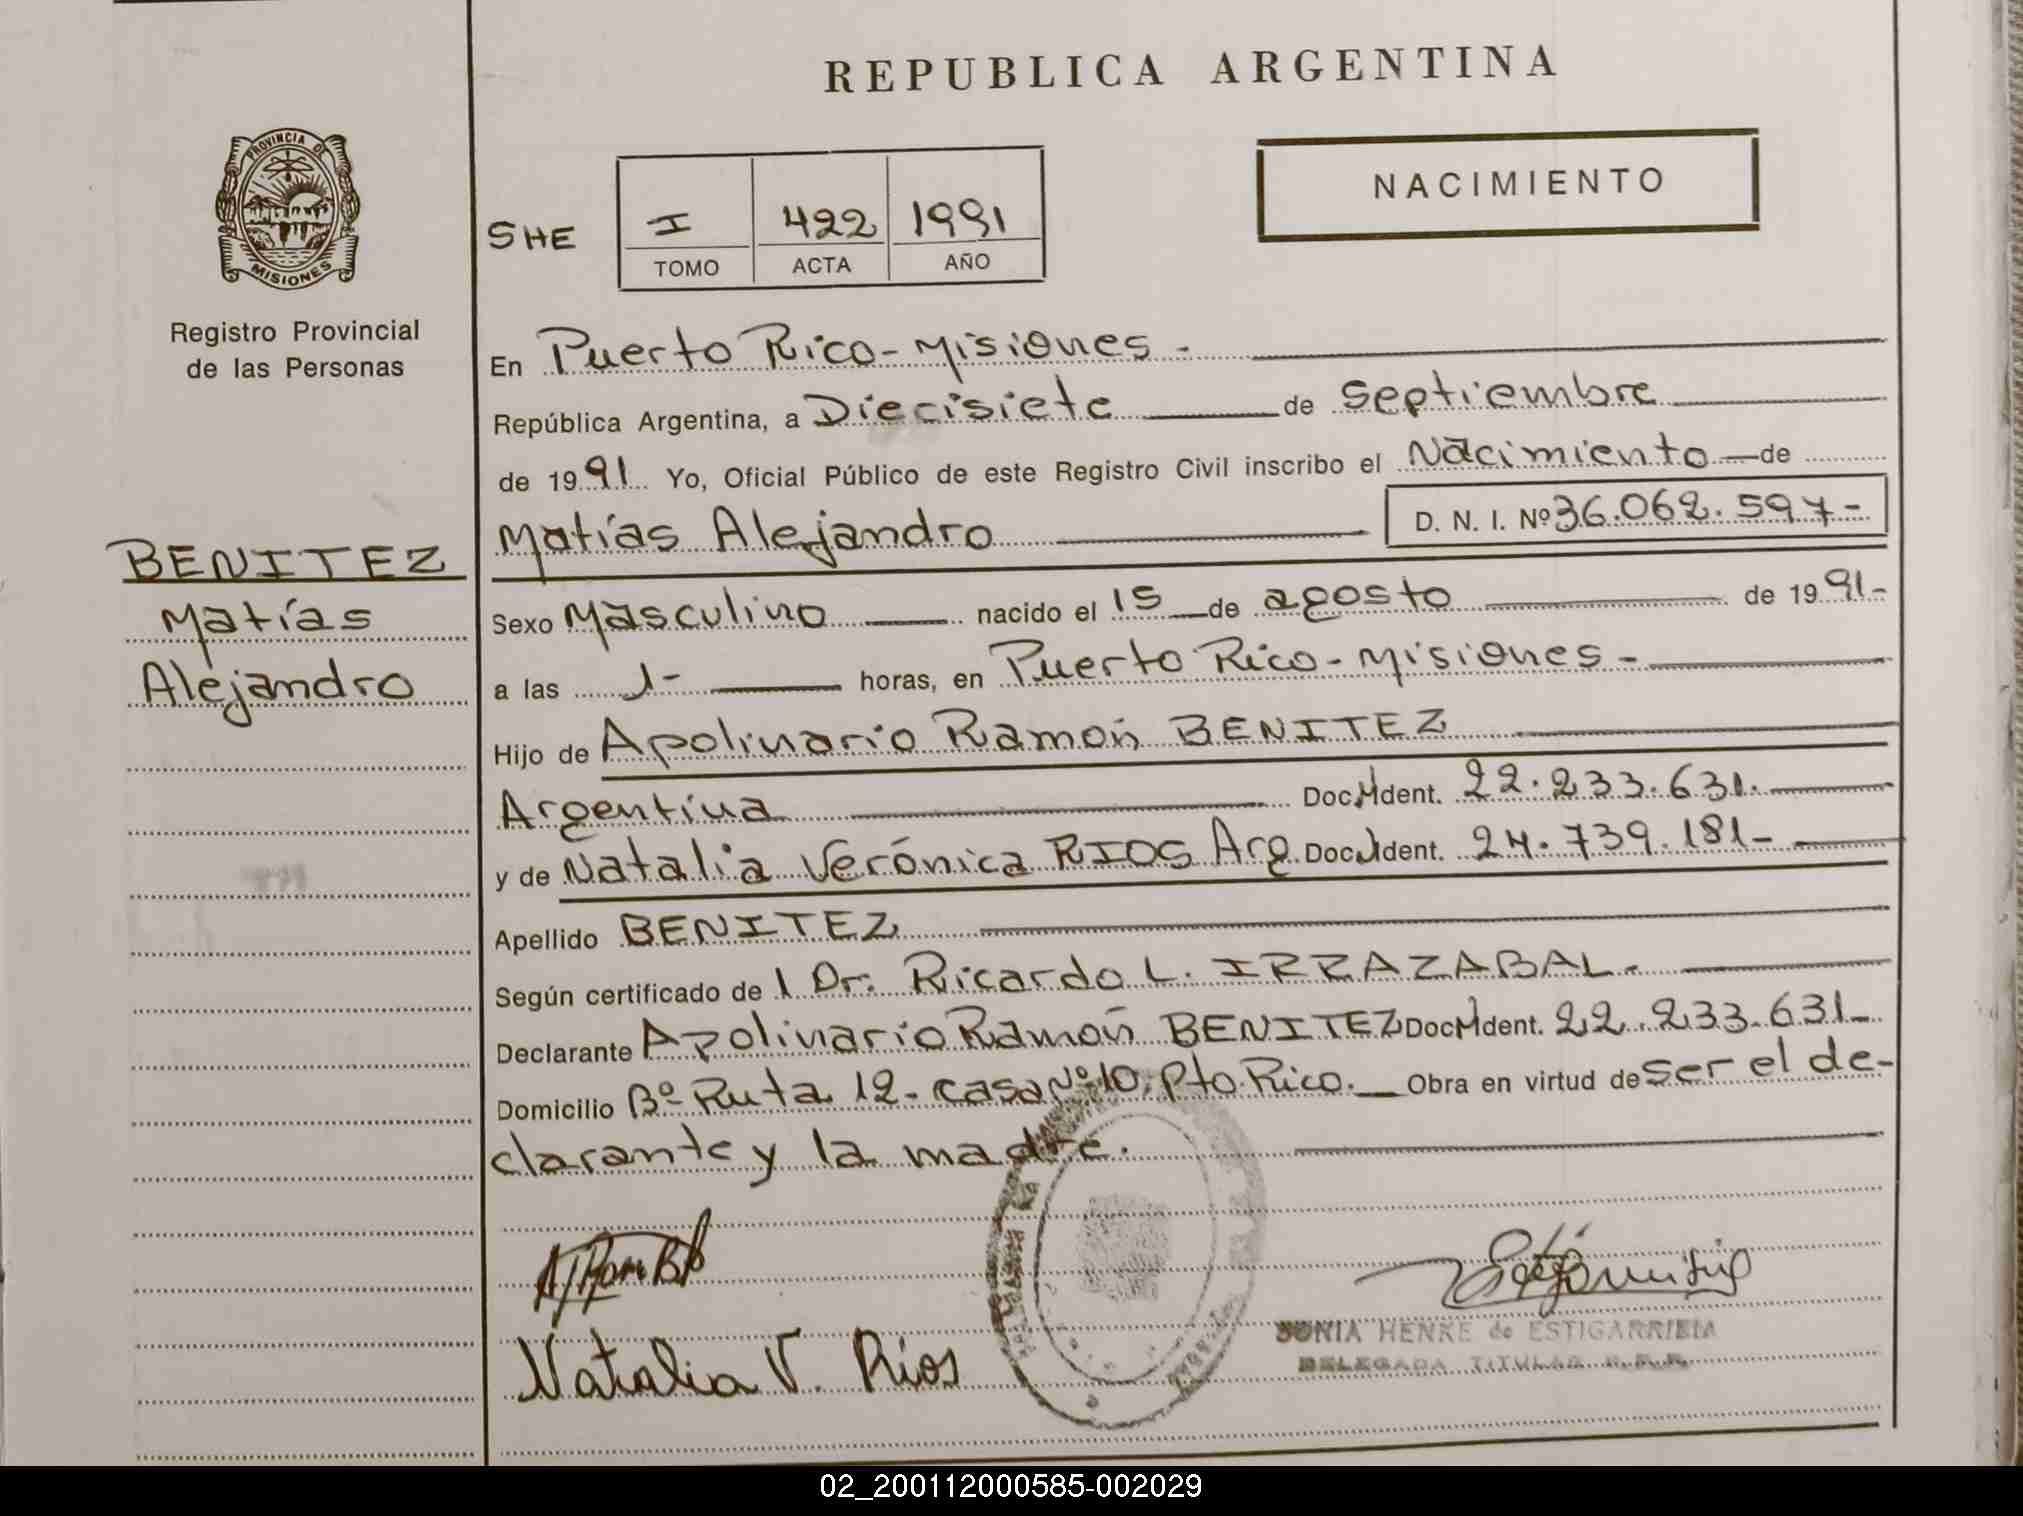 REPUBLICA ARGENTINA
PROVINCIA DE
MISIONES
Registro Provincial
de las Personas
NACIMIENTO
SHE
I 422 1991
TOMO ACTA AÑO
BENITEZ
Matías
Alejandro
En Puerto Rico - Misiones -
República Argentina, a Diecisiete de Septiembre
de 1991 Yo, Oficial Público de este Registro Civil inscribo el Nacimiento de
Matías Alejandro D. N. I. Nº 36.062.597-
Sexo Masculino nacido el 15 de agosto de 1991-
a las 1- horas, en Puerto Rico - Misiones -
Hijo de Apolinario Ramón BENITEZ
Argentina Doc. Ident. 22.233.631.
y de Natalia Verónica RIOS Arg. Doc. Ident. 24.739.181-
Apellido BENITEZ
Según certificado de l Dr. Ricardo L. IRRAZABAL.
Declarante Apolinario Ramón BENITEZ Doc. Ident. 22.233.631-
Domicilio Bº Ruta 12 - casa Nº 10. Pto. Rico. Obra en virtud de ser el de-
clarante y la madre.
Natalia V. Rios
SONIA HENKE de ESTIGARRIBIA
DELEGADA TITULAR R.P.P.
02_200112000585-002029